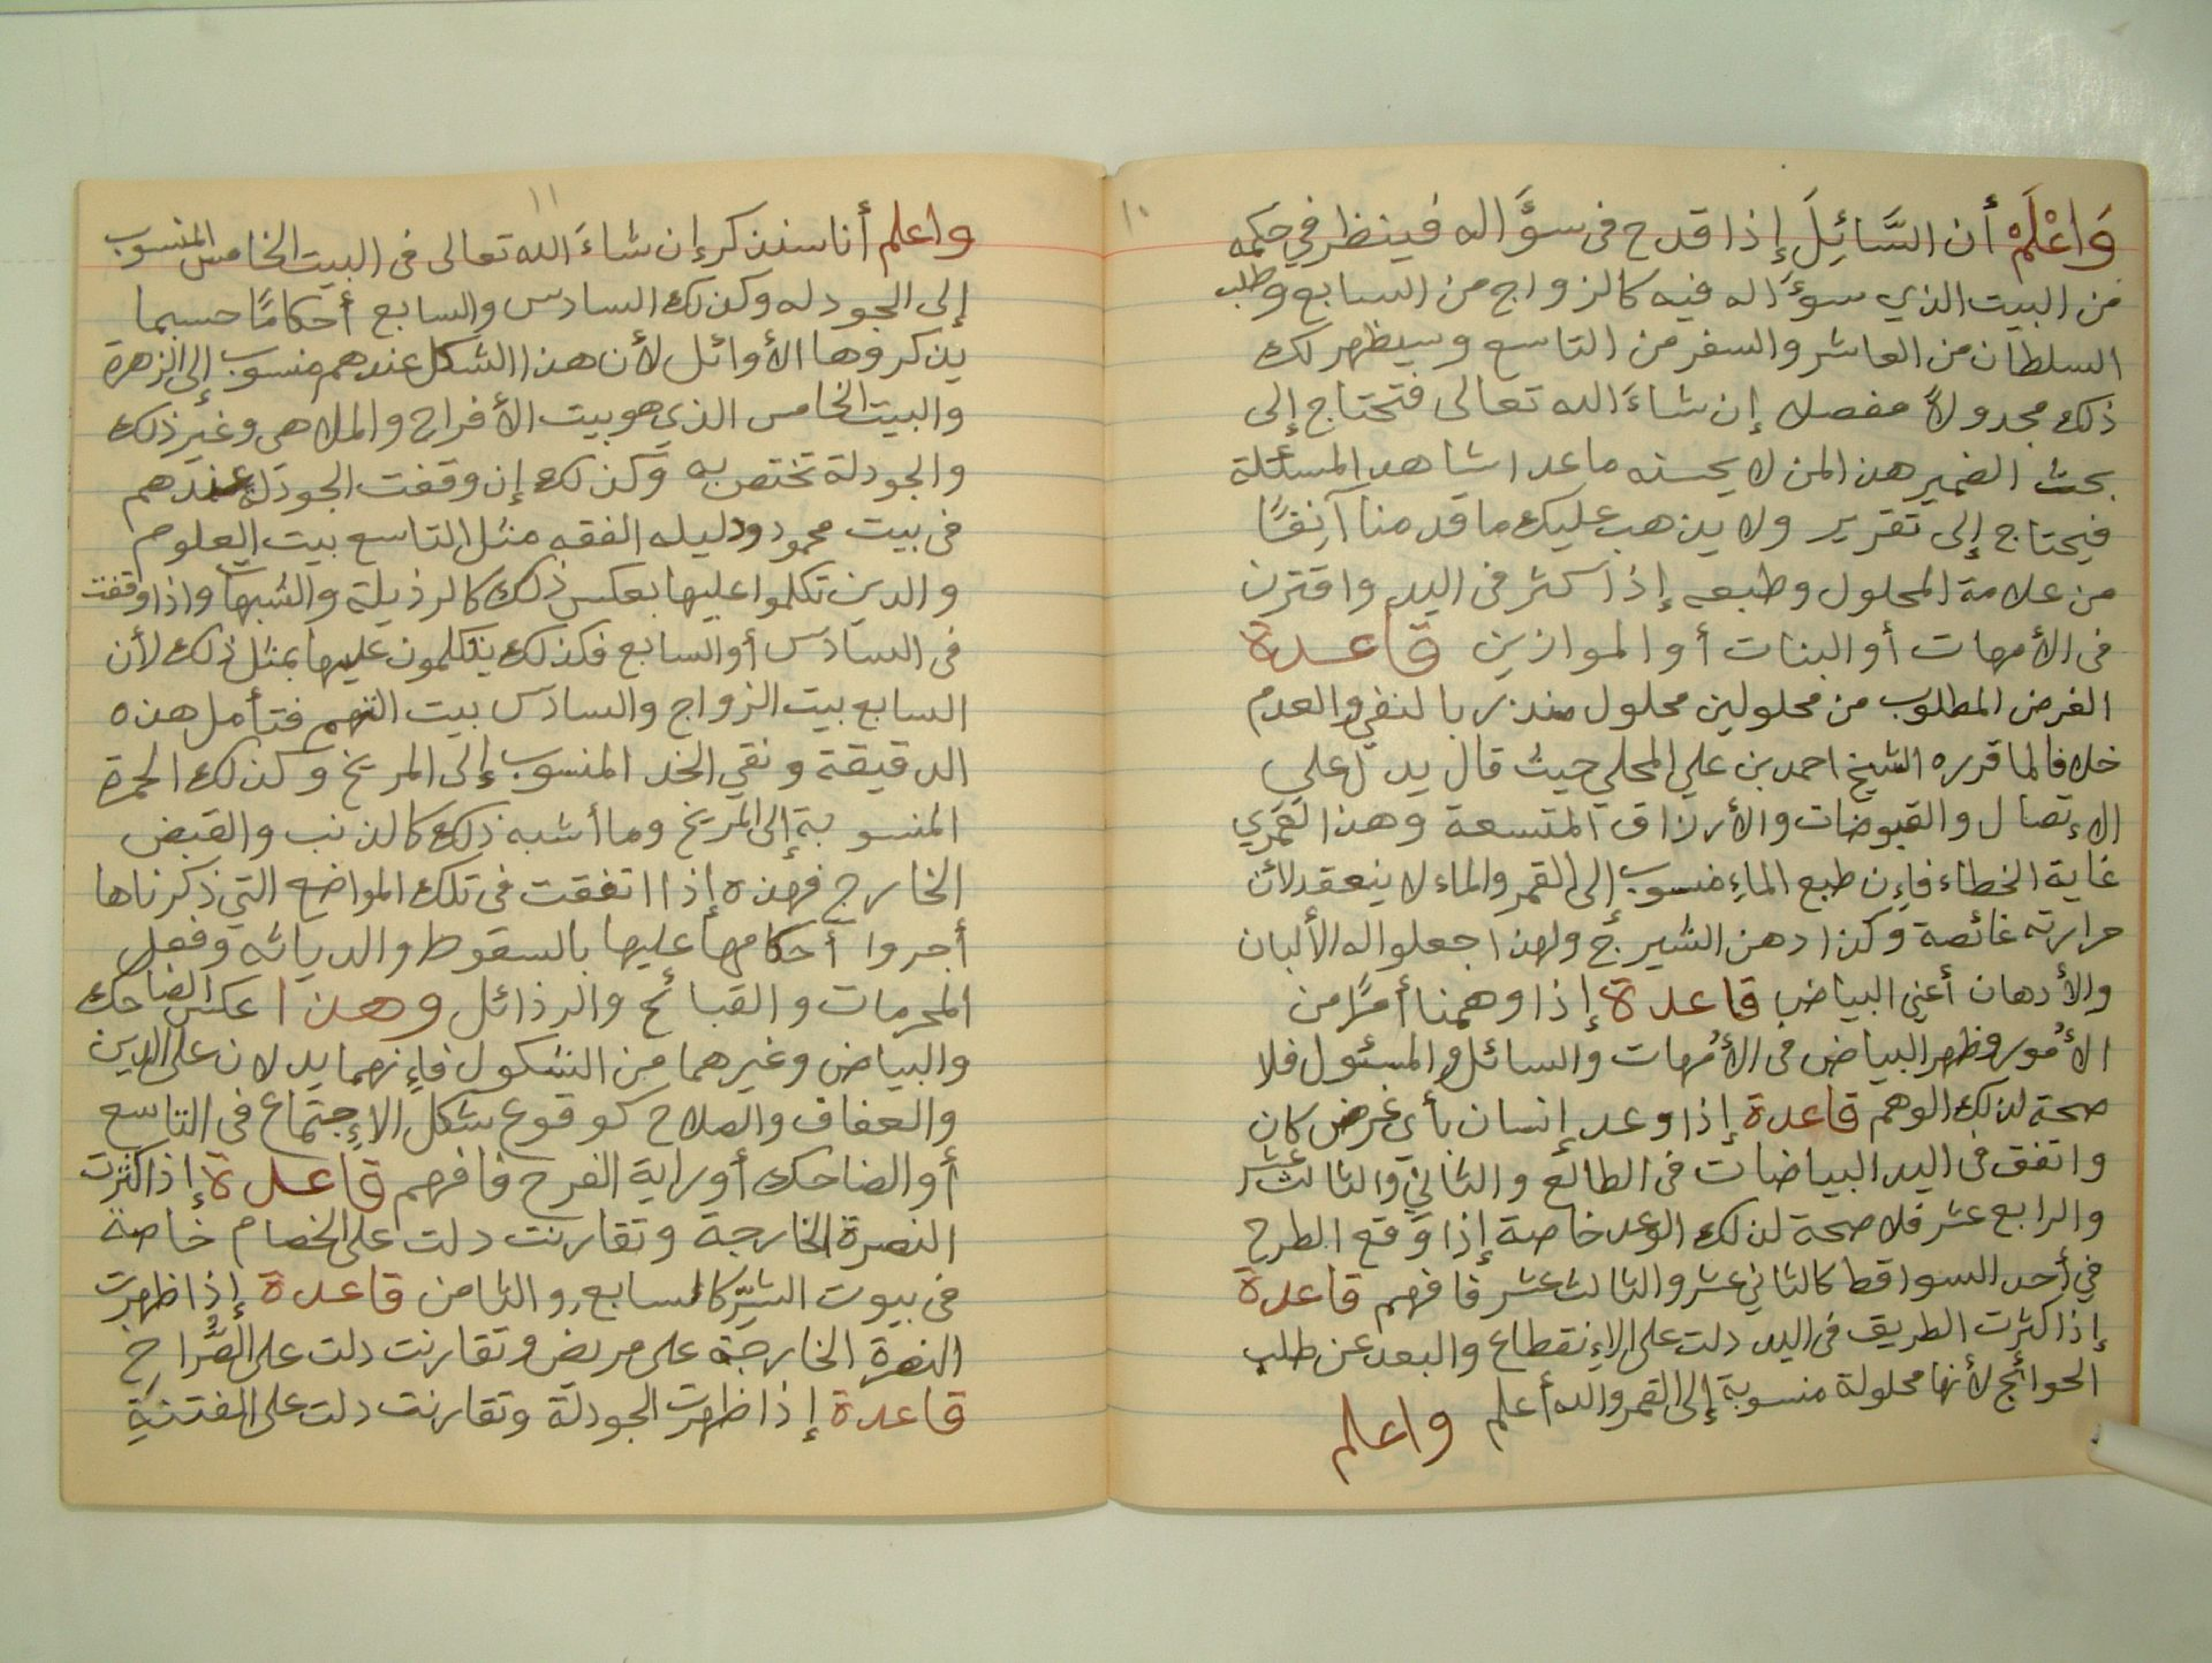 ١٠
وَاعْلَمْ أن السَّائِلَ إذا قدح فى سؤَّاله فينظر في حكمه
من البيت الذي سوءَاله فيه كالزواج من السابع وطلب
السلطان من العاشر والسفر من التاسع وسيظهر لك
ذلك مجدولاً مفصلا إن شاءَ الله تعالى فتحتاج إلى
بحث الضمير هذا لمن لا يحسنه ماعدا شاهد المسئلة
فيحتاج إلى تقرير ولا يذهب عليك ما قدمنا آنِفًا
من علامة المحلول وطبعه إذا كثر فى اليد واقترن
فى الأمهات أو البنات أو الموازين قاعدة
الغرض المطلوب من محلولين محلول منذر بالنفي والعدم
خلافا لما قرره الشيخ احمد بن علي المحلي حيث قال يدل على
الإتصال والقبوضات والأرزاق المتسعة وهذا لعمري
غاية الخطاء فإن طبع الماءِ منسوب إلى القمر والماء لا ينعقد لأن
حرارته غائصة وكذا دهن الشيرج ولهذا جعلوا له الألبان
والأدهان أعني البياض قاعدة إذا وهمنا أمرًا من
الأمُور وظهر البياض فى الأُمهات والسائل والمسئول فلا
صحة لذلك الوهم قاعدة إذا وعد إنسان بأي غرض كان
واتفق فى اليد البياضات فى الطالع والثاني والثالث عشر
والرابع عشر فلا صحة لذلك الوعد خاصة إذا وقع الطرح
في أحد السواقط كالثاني عشر والثالث عشر فافهم قاعدة
إذا كثرت الطريق فى اليد دلت على الإنقطاع والبعد عن طلب
الحوائج لأنها محلولة منسوبة إلى القمر والله أعلم واعلم
١١
واعلم أنا سنذكر إن شاءَ الله تعالى فى البيت الخامس المنسوب
إلى الجودله وكذلك السادس والسابع أحكامًا حسبما
يذكروها الأوائل لأن هذا الشكل عندهم منسوب إلى الزهرة
والبيت الخامس الذي هو بيت الأفراح والملاهى وغير ذلك
والجودلة تختص به وكذلك إن وقفت الجودلة عندهم
فى بيت محمود ودليله الفقه مثل التاسع بيت العلوم
والدين تكلموا عليها بعكس ذلك كالرذيلة والشبهات واذا وقفت
فى السادس أو السابع فكذلك يتكلمون عليها بمثل ذلك لأن
السابع بيت الزواج والسادس بيت التهم فتأمل هذه
الدقيقة ونقي الخد المنسوب إلى المريخ وكذلك الحمرة
المنسوبة إلى المريخ وما أشبه ذلك كالذنب والقبض
الخارج فهذه إذا اتفقت فى تلك المواضع التي ذكرناها
أجروا أحكامها عليها بالسقوط والدياثه وفعل
المحرمات والقبائح والرذائل وهذا عكس الضاحك
والبياض وغيرهما من الشكول فإنهما يدلان على الدين
والعفاف والصلاح كوقوع شكل الإجتماع فى التاسع
أو الضاحك أو راية الفرح فافهم قاعدة إذا كثرت
النصرة الخارجة وتقارنت دلت على الخصام خاصة
فى بيوت الشرّ كالسابع والثامن قاعدة إذا ظهرت
النصرة الخارجة على مريض وتقارنت دلت على الصُّراخ
قاعدة إذا ظهرت الجودلة وتقارنت دلت على الفتنةِ